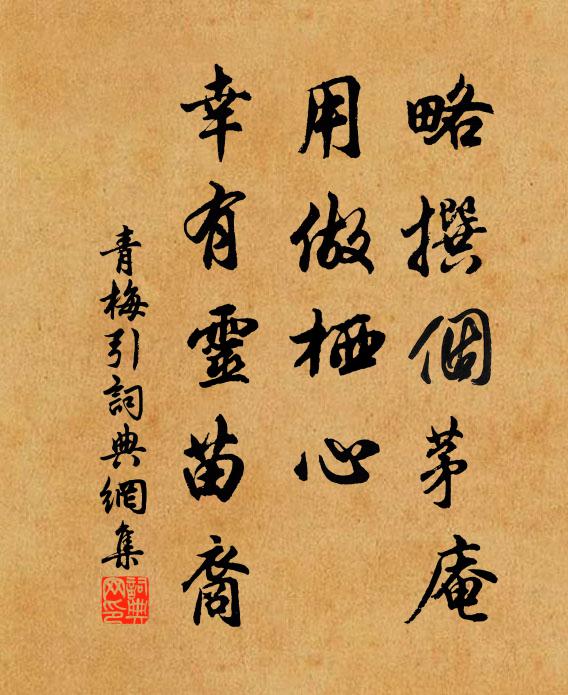 略撰個茅庵
用做栖心
幸有靈苗裔
青梅引詞典網集
詞典
网印